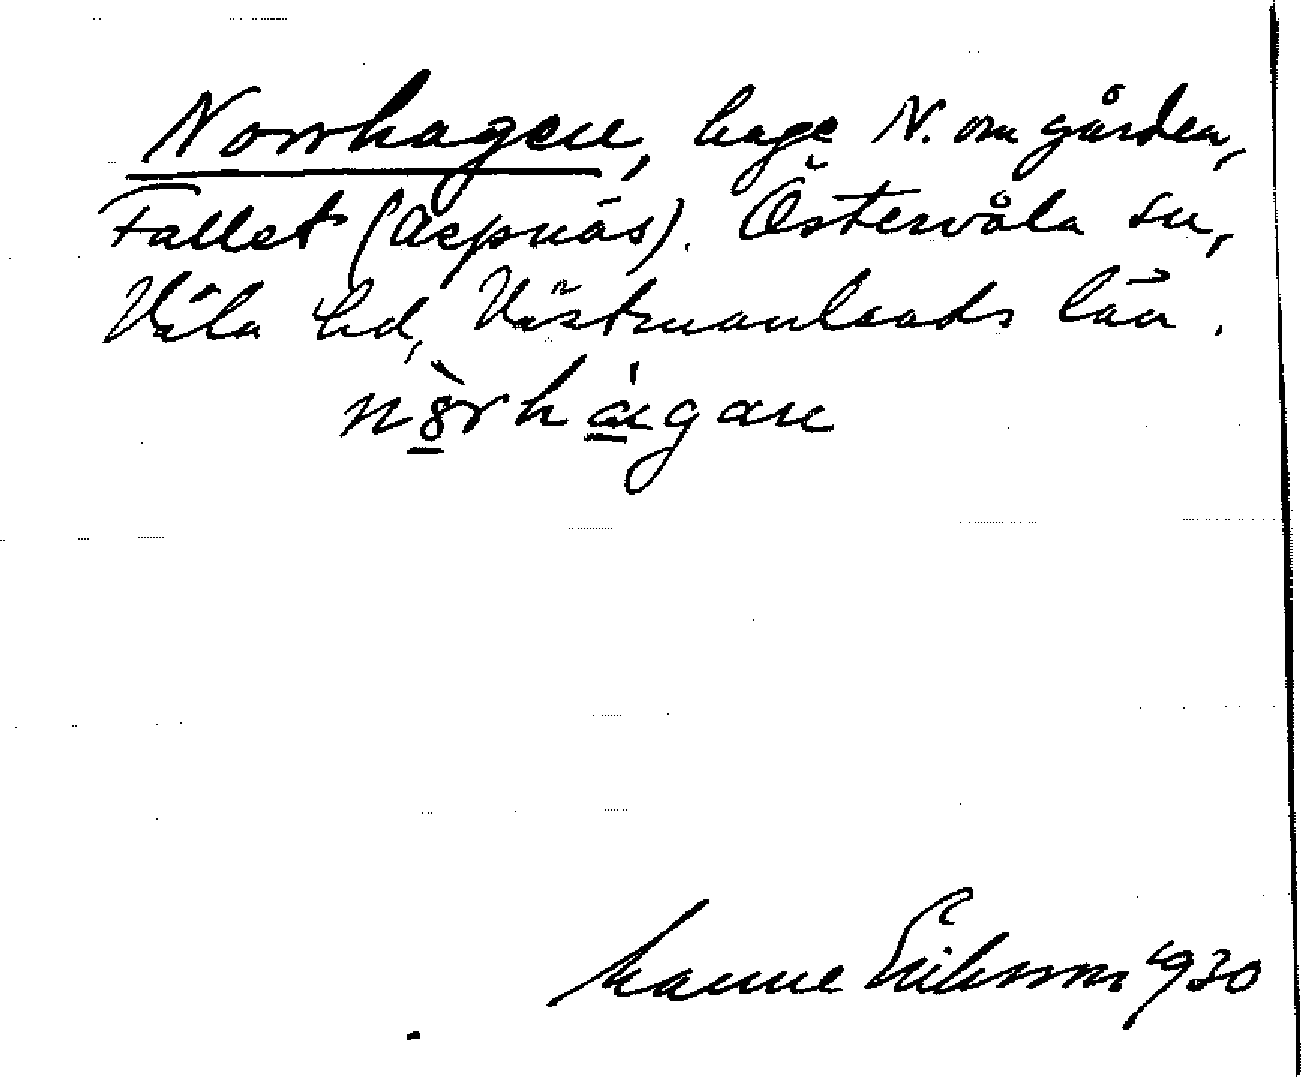 Norrhagen, hage N. om gården,
Fallet (Aspnäs). Östervåla sn,
Våla hd, Västmanlands län.
n8̀rhágan
Manne Eriksson 1930